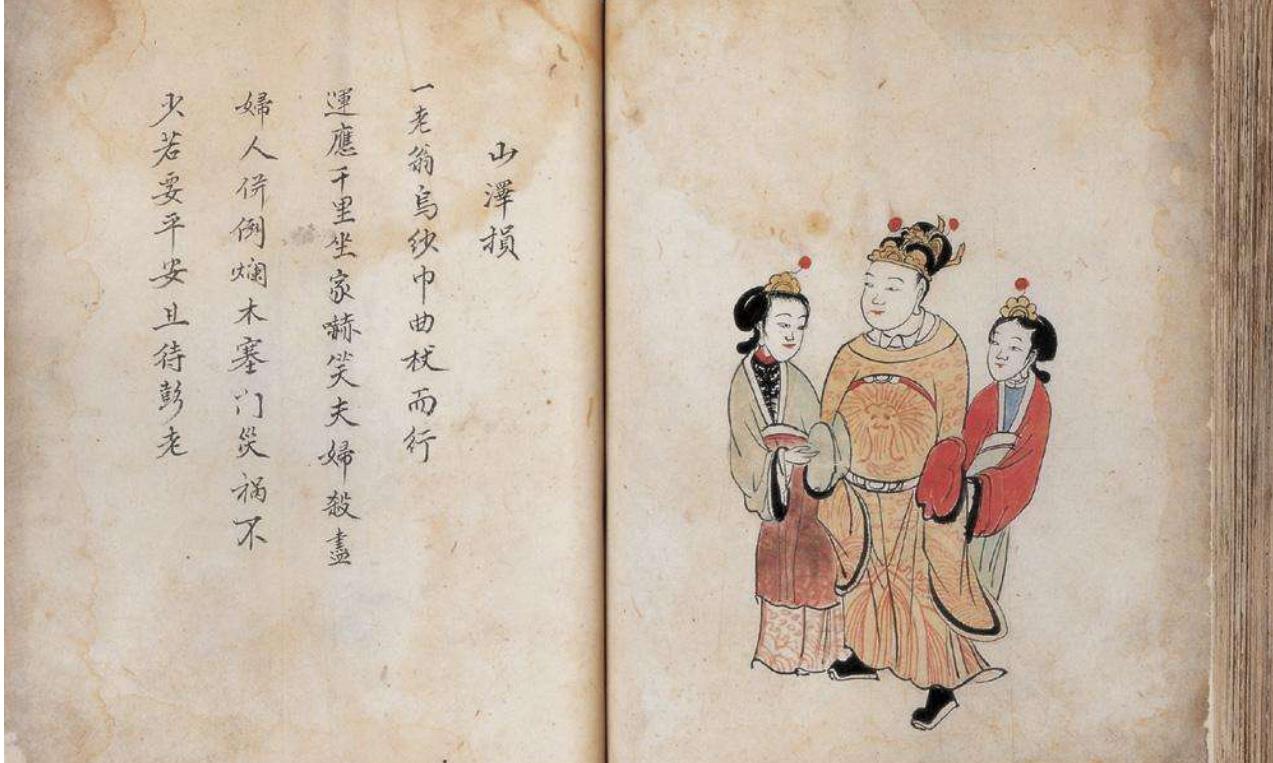 山澤損
一老翁烏紗巾曲杖而行
運應千里坐家嚇笑夫婦殺盡
婦人併例爛木塞門災禍不
少若要平安且待彭老